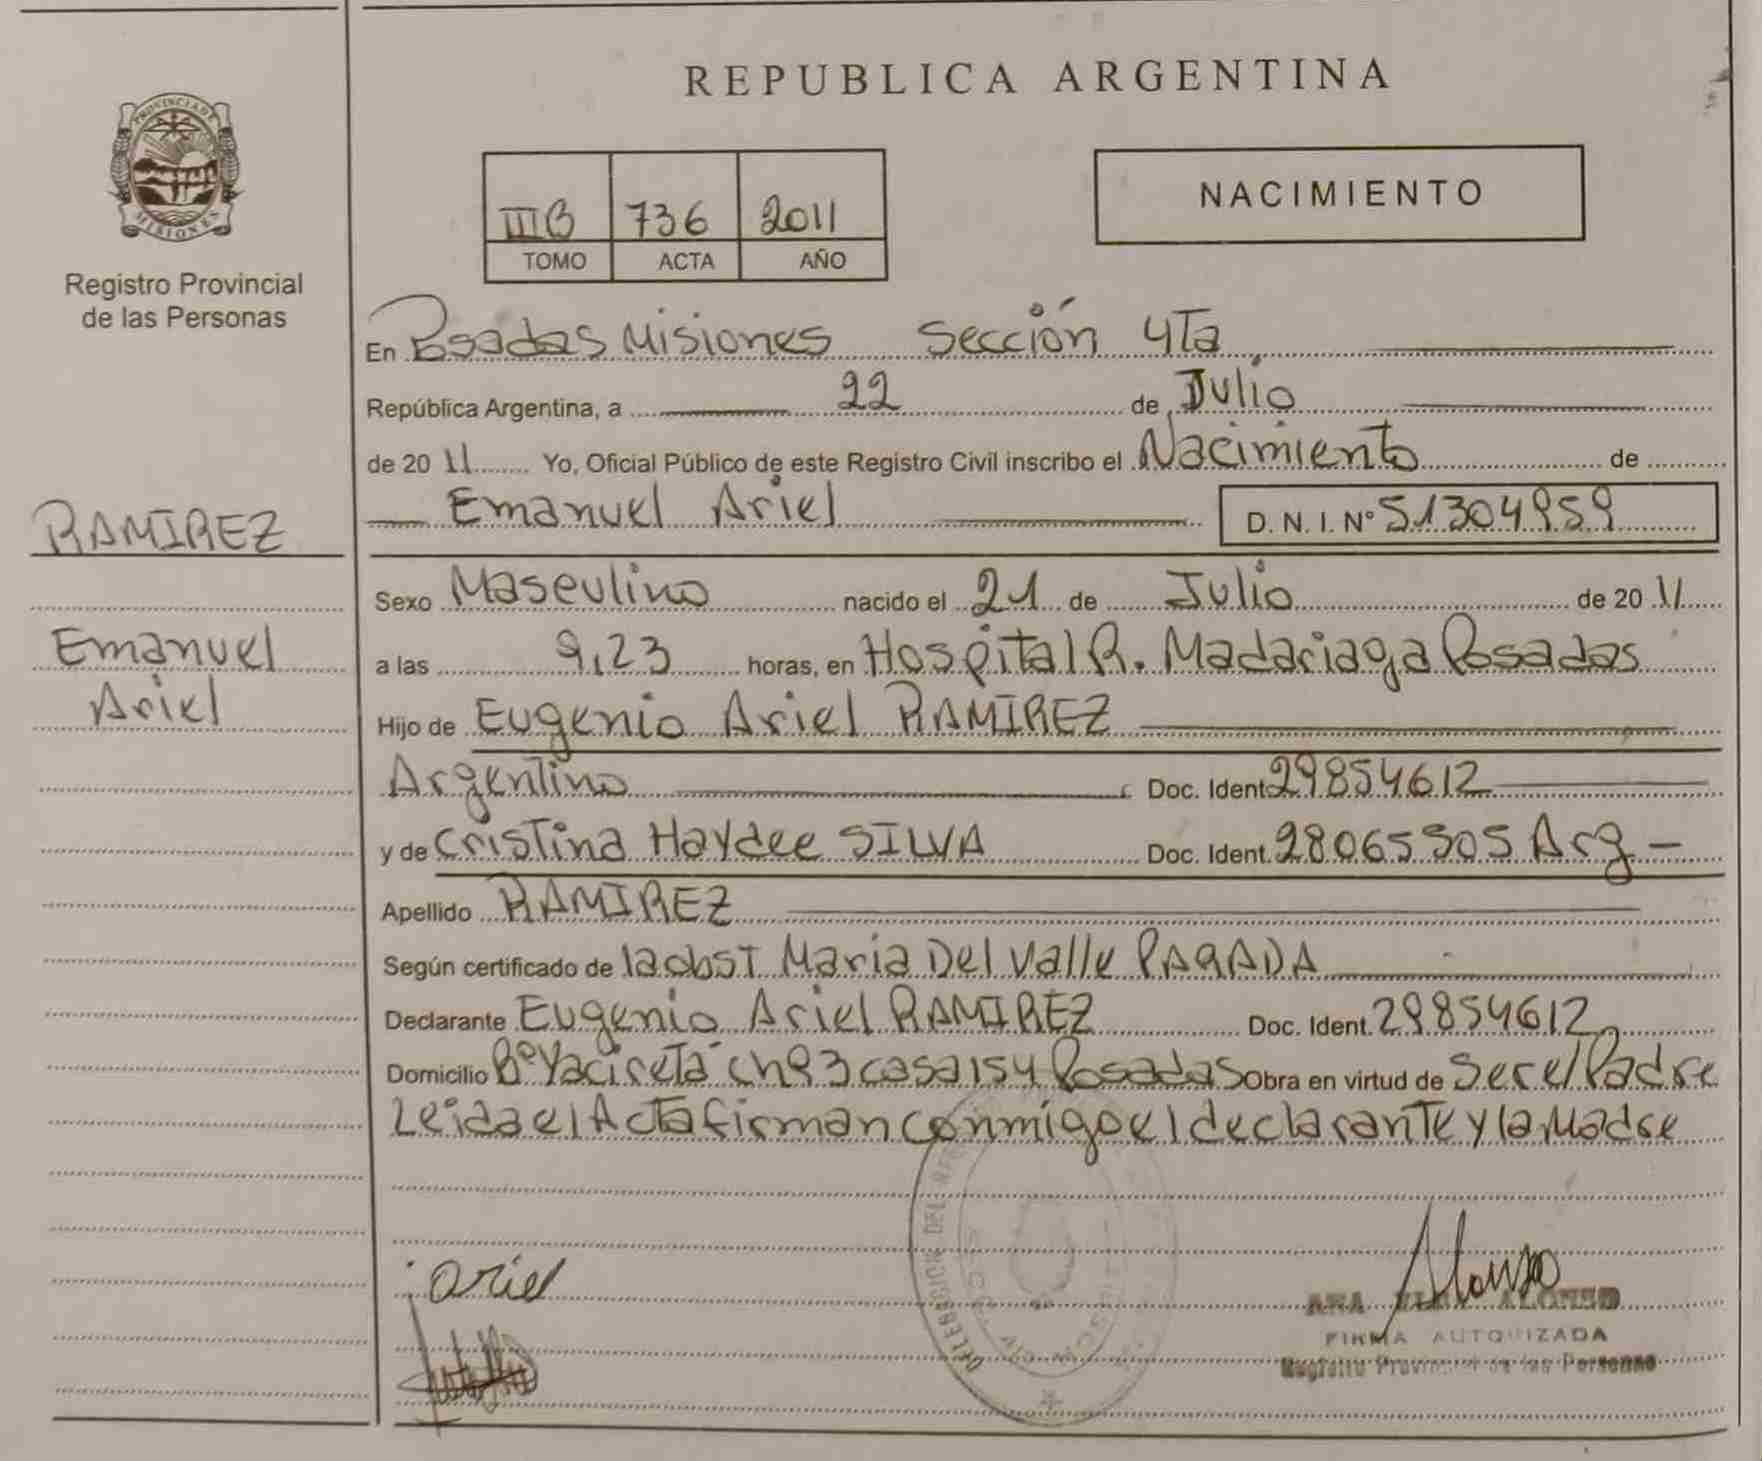 REPUBLICA ARGENTINA
PROVINCIA DE
MISIONES
Registro Provincial
de las Personas
IIIB 736 2011
TOMO ACTA AÑO
NACIMIENTO
En Posadas Misiones Sección 4Ta
República Argentina, a 22 de Julio
de 20 11 Yo, Oficial Público de este Registro Civil inscribo el Nacimiento de
Emanuel Ariel D. N. I. Nº 51304959
RAMIREZ
Emanuel
Ariel
Sexo Masculino nacido el 21 de Julio de 20 11
a las 9,23 horas, en Hospital R. Madariaga Posadas
Hijo de Eugenio Ariel RAMIREZ
Argentino Doc. Ident 29854612
y de Cristina Haydee SILVA Doc. Ident. 28065505 Arg -
Apellido RAMIREZ
Según certificado de la obsT Maria Del Valle PARADA
Declarante Eugenio Ariel RAMIREZ Doc. Ident. 29854612
Domicilio Bº Yacireta ch 93 casa 154 Posadas Obra en virtud de Ser el Padre
Leida el Acta firman conmigo el declarante y la Madre
Ariel
Alonso
ANA ALONSO
FIRMA AUTORIZADA
Registro Provincial de las Personas